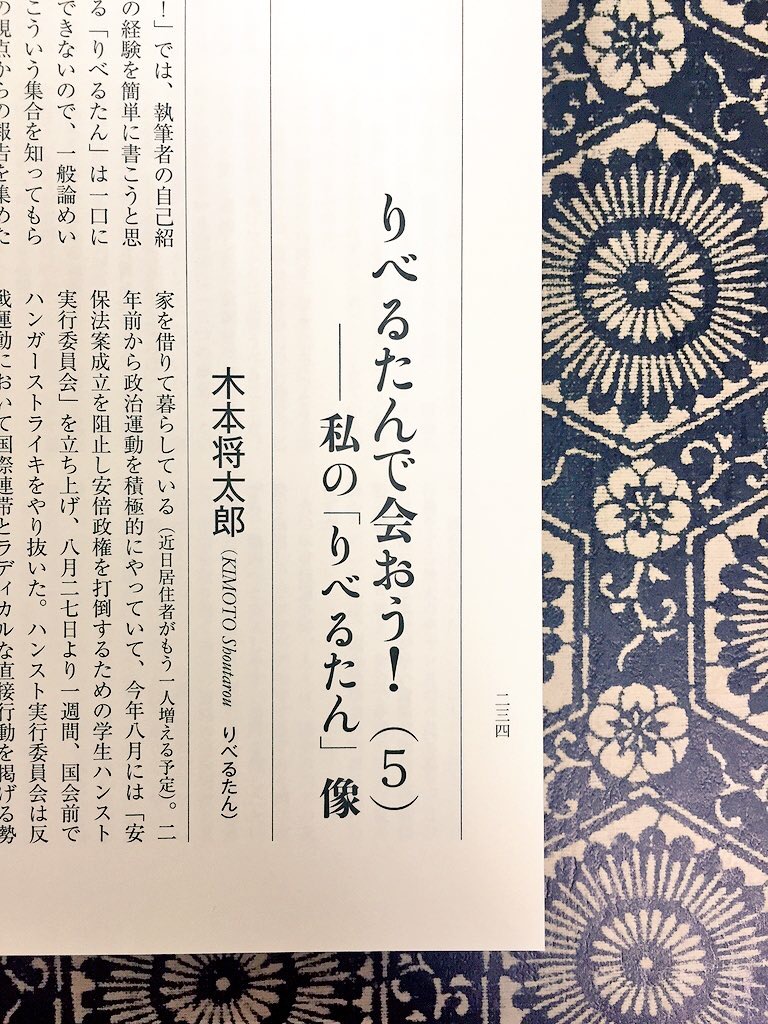 二三四
りべるたんで会おう！（5）
――私の「りべるたん」像
木本将太郎（KIMOTO Shoutarou りべるたん）
！」では、執筆者の自己紹
の経験を簡単に書こうと思
る「りべるたん」は一口に
できないので、一般論めい
こういう集合を知ってもら
の視点からの報告を集めた
家を借りて暮らしている（近日居住者がもう一人増える予定）。二
年前から政治運動を積極的にやっていて、今年八月には「安
保法案成立を阻止し安倍政権を打倒するための学生ハンスト
実行委員会」を立ち上げ、八月二七日より一週間、国会前で
ハンガーストライキをやり抜いた。ハンスト実行委員会は反
戦運動において国際連帯とラディカルな直接行動を掲げる勢